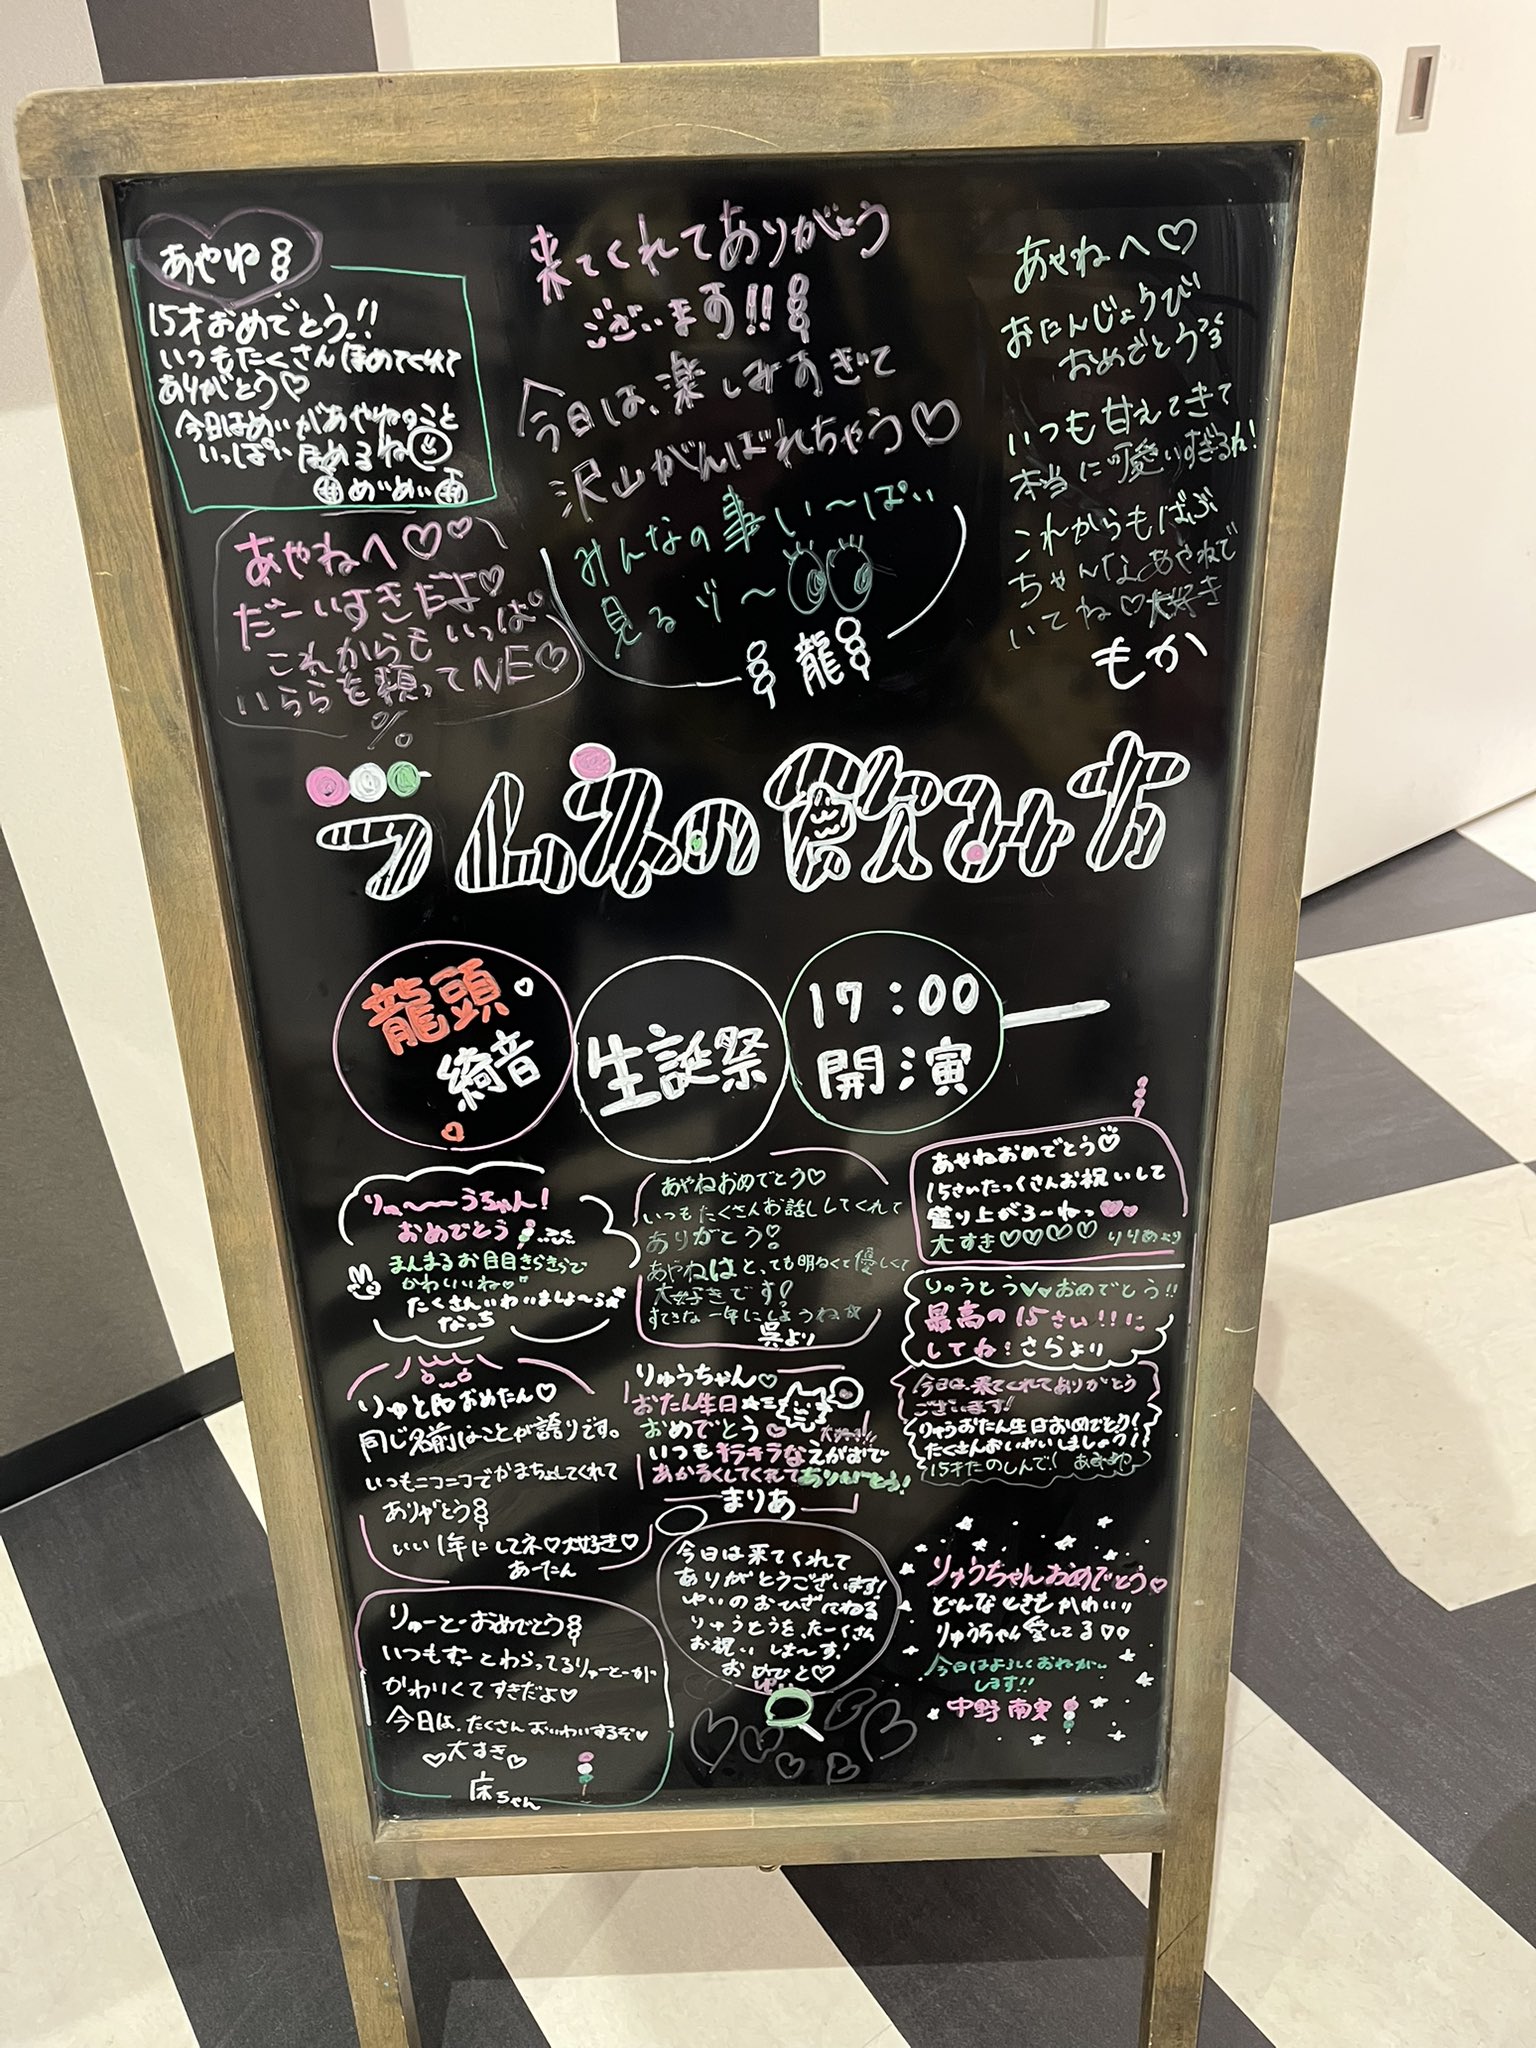 あやね
15才おめでとう!!
いつもたくさんほめてくれて
ありがとう♡
今日はめいがあやねのこと
いっぱいほめるね
めいめい
来てくれてありがとう
ございます!!
今日は、楽しみすぎて
沢山がんばれちゃう♡
みんなの事い〜ぱい
見るゾ〜
龍
あやねへ♡
おたんじょうび
おめでとう
いつも甘えてきて
本当に可愛いすぎるん!
これからもばぶ
ちゃんなあやねで
いてね♡大好き
もか
あやねへ♡♡
だーいすきだよ♡
これからもいっぱい
いららを頼ってNE♡
ラムネの飲み方
龍頭
綺音
生誕祭
17:00
開演
りゅ〜〜うちゃん!
おめでとう
まんまるお目目きらきらで
かわいいね♡
たくさんいわいましょ〜う
なっち
あやねおめでとう♡
いつもたくさんお話ししてくれて
ありがとう!
あやねはと、ても明るくて優しくて
大好きです!
すてきな一年にしようね☆
呉より
あやねおめでとう♡
15さいたっくさんお祝いして
盛り上がろーねっ♡♡
大すき♡♡♡♡ りりあより
りゅうとう♡♡おめでとう!!
最高の15さい!!に
してね! さらより
おめたん♡
同じ名前はことが誇りです。
いつもニコニコでかまちょしてくれて
ありがとう
いい1年にしてネ♡大好き♡
あーたん
りゅうちゃん♡
おたん生日☆
おめでとう♡
大好き!!
いつもキラキラなえがおで
あかるくしてくれてありがとう!
まりあ
今日は、来てくれてありがとう
ございます!
りゅうおたん生日おめでとう!
たくさんおいわいしましょう!
15才たのしんで!
りゅーとーおめでとう
いつもずーとわらってるりゅーとーが
かわいくてすきだよ♡
今日は、たくさんおいわいするぞ♡
♡大すき♡
床ちゃん
今日は来てくれて
ありがとうございます!
ゆいのおひざでねる
りゅうとうを、たーくさん
お祝いしま〜す!
おめひと♡
ゆい
りゅうちゃんおめでとう♡
どんなときもかわいい
りゅうちゃん愛してる♡♡
今日はよろしくおねがい
します!!
中野 南実